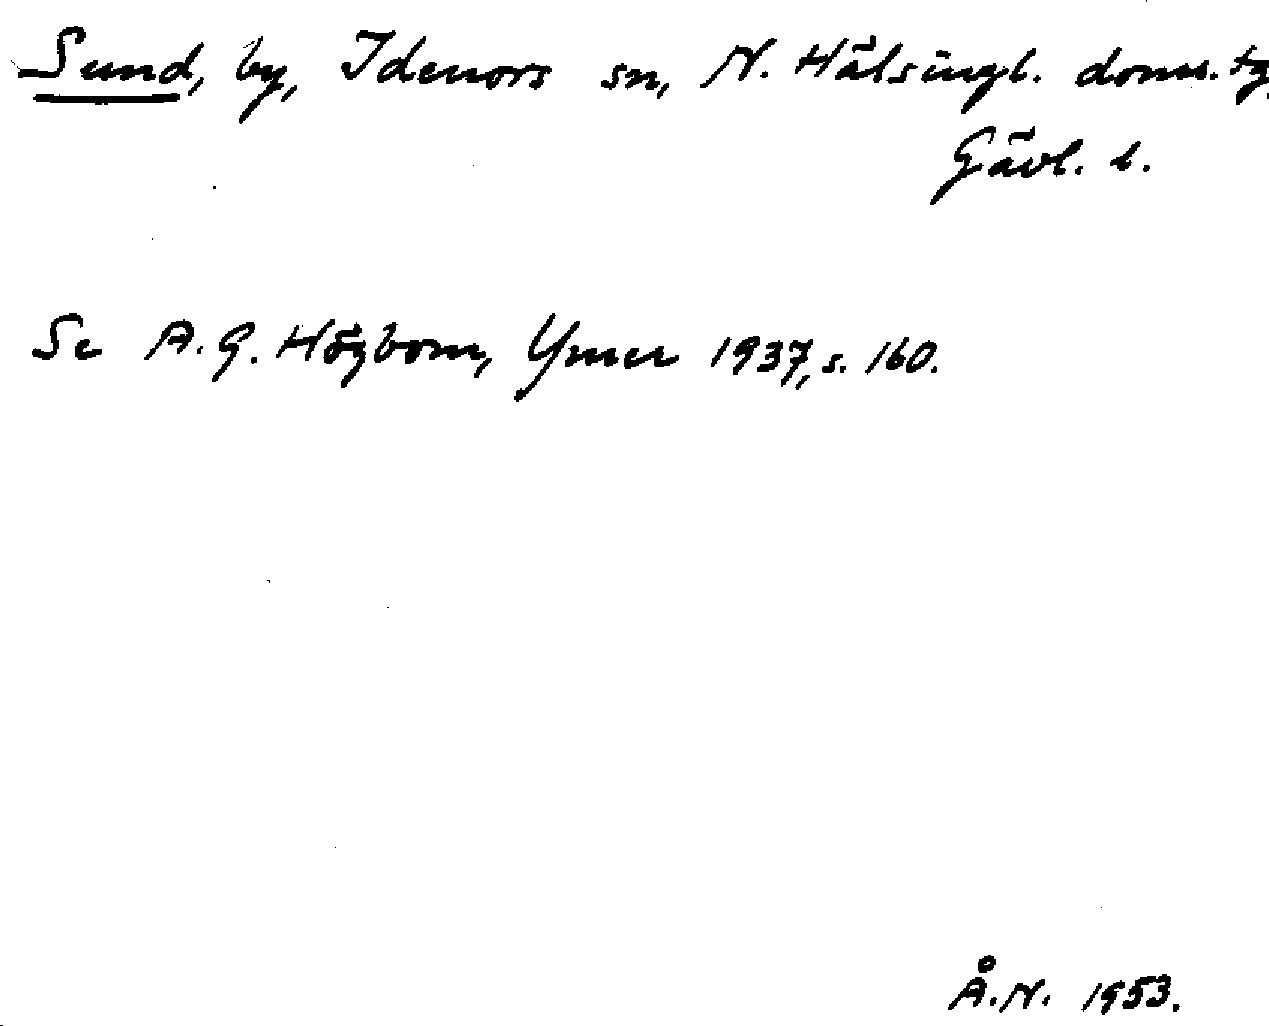 Sund, by, Idenors sn, N. Hälsingl. doms. tg.
Gävl. l.
Se A. G. Högbom, Ymer 1937, s. 160.
Å. N. 1953.